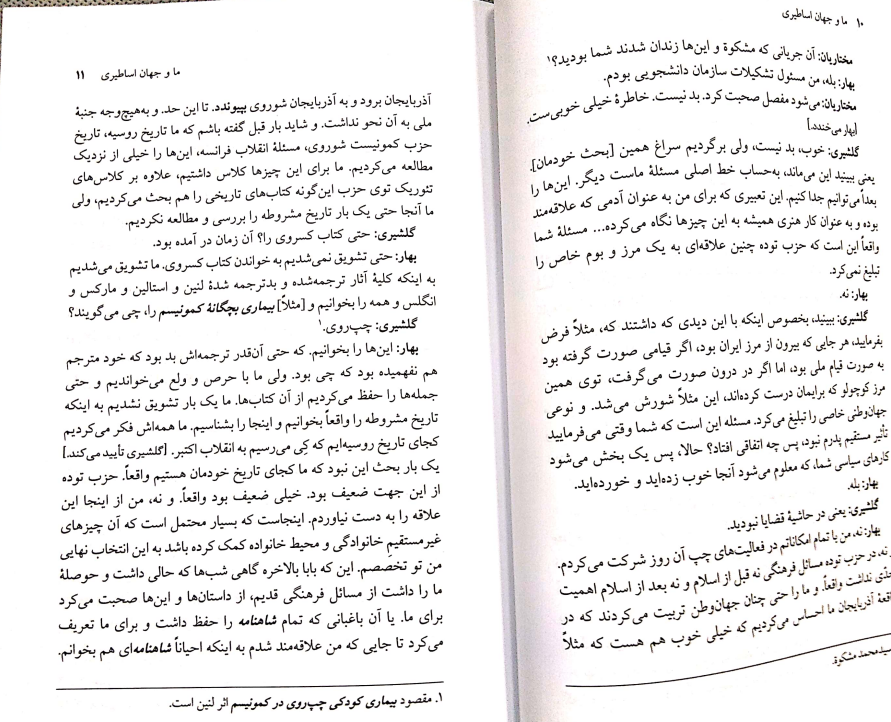 ۱۰ ما و جهان اساطیری
مختاریان: آن جریانی که مشکوة و این‌ها زندان شدند شما بودید؟۱
بهار: بله، من مسئول تشکیلات سازمان دانشجویی بودم.
مختاریان: می‌شود مفصل صحبت کرد. بد نیست. خاطرهٔ خیلی خوبی‌ست.
[بهار می‌خندد.]
گلشیری: خوب، بد نیست، ولی برگردیم سراغ همین [بحث خودمان].
یعنی ببینید این می‌ماند، به‌حساب خط اصلی مسئلهٔ ماست دیگر. این‌ها را
بعداً می‌توانیم جدا کنیم. این تعبیری که برای من به عنوان آدمی که علاقه‌مند
بوده و به عنوان کار هنری همیشه به این چیزها نگاه می‌کرده... مسئلهٔ شما
واقعاً این است که حزب توده چنین علاقه‌ای به یک مرز و بوم خاص را
تبلیغ نمی‌کرد.
بهار: نه.
گلشیری: ببینید، بخصوص اینکه با این دیدی که داشتند که، مثلاً فرض
بفرمایید، هر جایی که بیرون از مرز ایران بود، اگر قیامی صورت گرفته بود
به صورت قیام ملی بود، اما اگر در درون صورت می‌گرفت، توی همین
مرز کوچولو که برایمان درست کرده‌اند، این مثلاً شورش می‌شد. و نوعی
جهان‌وطنی خاصی را تبلیغ می‌کرد. مسئله این است که شما وقتی می‌فرمایید
تأثیر مستقیم پدرم نبود، پس چه اتفاقی افتاد؟ حالا، پس یک بخش می‌شود
کارهای سیاسی شما، که معلوم می‌شود آنجا خوب زده‌اید و خورده‌اید.
بهار: بله.
گلشیری: یعنی در حاشیهٔ قضایا نبودید.
بهار: نه، من با تمام امکاناتم در فعالیت‌های چپ آن روز شرکت می‌کردم.
نه، در حزب توده مسائل فرهنگی نه قبل از اسلام و نه بعد از اسلام اهمیت
جدّی نداشت واقعاً. و ما را حتی چنان جهان‌وطن تربیت می‌کردند که در
آذربایجان ما احساس می‌کردیم که خیلی خوب هم هست که مثلاً
سیدمحمد مشکوة.
ما و جهان اساطیری ۱۱
آذربایجان برود و به آذربایجان شوروی بپیوندد. تا این حد. و به‌هیچ‌وجه جنبهٔ
ملی به آن نحو نداشت. و شاید بار قبل گفته باشم که ما تاریخ روسیه، تاریخ
حزب کمونیست شوروی، مسئلهٔ انقلاب فرانسه، این‌ها را خیلی از نزدیک
مطالعه می‌کردیم. ما برای این چیزها کلاس داشتیم، علاوه بر کلاس‌های
تئوریک توی حزب این‌گونه کتاب‌های تاریخی را هم بحث می‌کردیم، ولی
ما آنجا حتی یک بار تاریخ مشروطه را بررسی و مطالعه نکردیم.
گلشیری: حتی کتاب کسروی را؟ آن زمان در آمده بود.
بهار: حتی تشویق نمی‌شدیم به خواندن کتاب کسروی. ما تشویق می‌شدیم
به اینکه کلیهٔ آثار ترجمه‌شده و بدترجمه شدهٔ لنین و استالین و مارکس و
انگلس و همه را بخوانیم و [مثلاً] بیماری بچگانهٔ کمونیسم را، چی می‌گویند؟
گلشیری: چپ‌روی.۱
بهار: این‌ها را بخوانیم. که حتی آن‌قدر ترجمه‌اش بد بود که خود مترجم
هم نفهمیده بود که چی بود. ولی ما با حرص و ولع می‌خواندیم و حتی
جمله‌ها را حفظ می‌کردیم از آن کتاب‌ها. ما یک بار تشویق نشدیم به اینکه
تاریخ مشروطه را واقعاً بخوانیم و اینجا را بشناسیم. ما همه‌اش فکر می‌کردیم
کجای تاریخ روسیه‌ایم که کِی می‌رسیم به انقلاب اکتبر. [گلشیری تأیید می‌کند.]
یک بار بحث این نبود که ما کجای تاریخ خودمان هستیم واقعاً. حزب توده
از این جهت ضعیف بود. خیلی ضعیف بود واقعاً. و نه، من از اینجا این
علاقه را به دست نیاوردم. اینجاست که بسیار محتمل است که آن چیزهای
غیرمستقیمِ خانوادگی و محیط خانواده کمک کرده باشد به این انتخاب نهایی
من تو تخصصم. این که بابا بالاخره گاهی شب‌ها که حالی داشت و حوصلهٔ
ما را داشت از مسائل فرهنگی قدیم، از داستان‌ها و این‌ها صحبت می‌کرد
برای ما. یا آن باغبانی که تمام شاهنامه را حفظ داشت و برای ما تعریف
می‌کرد تا جایی که من علاقه‌مند شدم به اینکه احیاناً شاهنامه‌ای هم بخوانم.
۱. مقصود بیماری کودکی چپ‌روی در کمونیسم اثر لنین است.